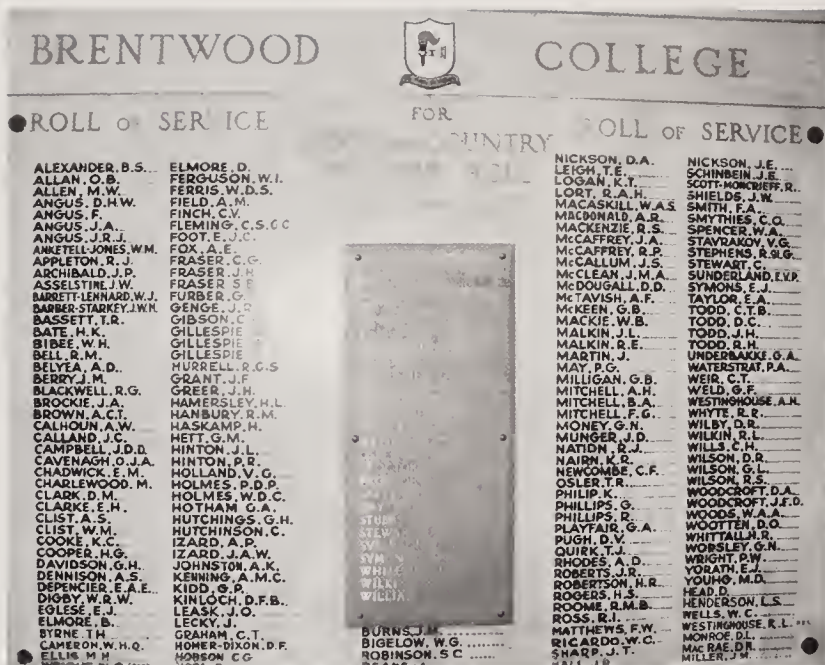 BRENTWOOD COLLEGE
ROLL OF SERVICE
FOR
ROLL OF SERVICE
ALEXANDER, B.S.
ALLAN, O.B.
ALLEN, M.W.
ANGUS, D.H.W.
ANGUS, F.
ANGUS, J.A.
ANGUS, J.R.J.
ANKETELL-JONES, W.M.
APPLETON, R.J.
ARCHIBALD, J.P.
ASSELSTINE, J.W.
BARRETT-LENNARD, W.J.
BARBER-STARKEY, J.W.H.
BASSETT, T.R.
BATE, H.K.
BIBEE, W.H.
BELL, R.M.
BELYEA, A.D.
BERRY, J.M.
BLACKWELL, R.G.
BROCKIE, J.A.
BROWN, A.C.T.
CALHOUN, A.W.
CALLAND, J.C.
CAMPBELL, J.D.D.
CAVENAGH, O.J.A.
CHADWICK, E.M.
CHARLEWOOD, M.
CLARK, D.M.
CLARKE, E.H.
CLIST, A.S.
CLIST, W.M.
COOKE, K.C.
COOPER, H.G.
DAVIDSON, G.H.
DENNISON, A.S.
DEPENCIER, E.A.E.
DIGBY, W.R.W.
EGLESE, E.J.
ELMORE, B.
BYRNE, T.H.
CAMERON, W.H.Q.
ELLIS, M.H.
ELMORE, D.
FERGUSON, W.I.
FERRIS, W.D.S.
FIELD, A.M.
FINCH, C.V.
FLEMING, C.S.
FOOT, E.J.C.
FOX, A.E.
FRASER, C.G.
FRASER, J.H.
FRASER S
FURBER, G.
GENGE, J.R.
GIBSON, C
GILLESPIE
GILLESPIE
GILLESPIE
HURRELL, R.G.S
GRANT, J.F
GREER, J.H.
HAMERSLEY, H.L.
HANBURY, R.M.
HASKAMP, H.
HETT, G.M.
HINTON, J.L.
HINTON, P.R.
HOLLAND, V.G.
HOLMES, P.D.P.
HOLMES, W.D.C.
HOTHAM G.A.
HUTCHINGS, G.H.
HUTCHINSON, C.
IZARD, A.P.
IZARD, J.A.W.
JOHNSTON, A.K.
KENNING, A.M.C.
KIDD, G.P.
KINLOCH, D.F.B.
LEASK, J.O.
LECKY, J.
GRAHAM, C.T.
HOMER-DIXON, D.F.
HOBSON C G
BURNS, J.M.
BIGELOW, W.G.
ROBINSON, S C
NICKSON, D.A.
LEIGH, T.E.
LOGAN, K.T.
LORT, R.A.H.
MACASKILL, W.A.S
MACDONALD, A.R.
MACKENZIE, R.S.
McCAFFREY, J.A.
McCAFFREY, R.P.
McCALLUM, J.S.
McCLEAN, J.M.A.
McDOUGALL, D.D.
McTAVISH, A.F.
McKEEN, G.B.
MACKIE, W.B.
MALKIN, J.L.
MALKIN, R.E.
MARTIN, J.
MAY, P.G.
MILLIGAN, G.B.
MITCHELL, A.H.
MITCHELL, B.A.
MITCHELL, F.G.
MONEY, G.N.
MUNGER, J.D.
NATION, R.J.
NAIRN, K.R.
NEWCOMBE, C.F.
OSLER, T.R.
PHILIP, K.
PHILLIPS, G.
PHILLIPS, R.
PLAYFAIR, G.A.
PUGH, D.V.
QUIRK, T.J.
RHODES, A.D.
ROBERTS, J.R.
ROBERTSON, H.R.
ROGERS, H.S.
ROOME, R.M.B.
ROSS, R.I.
MATTHEWS, F.W.
RICARDO, W.C.
SHARP, J.T.
NICKSON, J.E.
SCHINBEIN, J.E.
SCOTT-MONCRIEFF, R.
SHIELDS, J.W.
SMITH, F.A.
SMYTHIES, C.O.
SPENCER, W.A.
STAVRAKOV, V.G.
STEPHENS, R.
STEWART, C.
SUNDERLAND, E.V.P.
SYMONS, E.J.
TAYLOR, E.A.
TODD, C.T.B.
TODD, D.C.
TODD, J.H.
TODD, R.H.
UNDERBAKKE, G.A.
WATERSTRAT, P.A.
WEIR, C.T.
WELD, G.F.
WESTINGHOUSE, A.H.
WHYTE, R.R.
WILBY, D.R.
WILKIN, R.L.
WILLS, C.H.
WILSON, D.R.
WILSON, G.L.
WILSON, R.S.
WOODCROFT, D.A.
WOODCROFT, J.F.D.
WOODS, W.A.A.
WOOTTEN, D.O.
WHITTALL, H.R.
WORSLEY, G.N.
WRIGHT, P.W.
YORATH, E.J.
YOUNG, M.D.
HEAD, D.
HENDERSON, L.S.
WELLS, W.C.
WESTINGHOUSE, R.L.
MONROE, D.L.
MAC RAE, D.R.
MILLER, J.M.